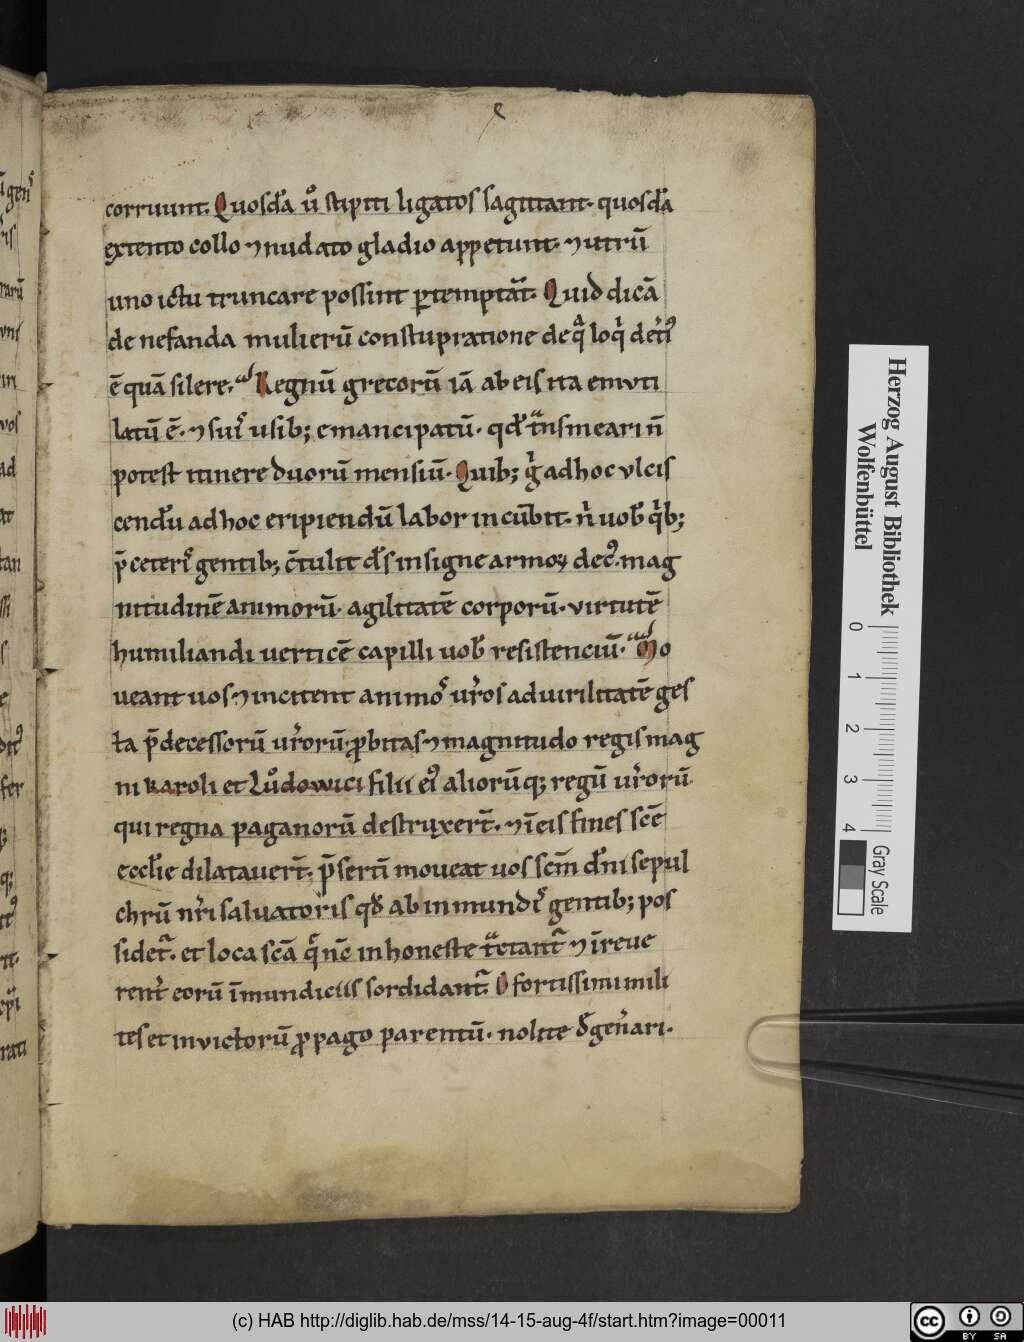 corruunt. Quosdā ů stipiti ligatos sagittant. quosdā
extento collo ⁊ nudato gladio appetunt. ⁊ utrū
uno ictu truncare possint ꝑtemptāt. Quid dicā
de nefanda mulierū constupratione de qͣ loqͥ detiꝰ
ē quā silere. Regnū grecorū iā ab eis ita emuti
latū ē. ⁊ suiͬ usib; emancipatū. qd̓ tͣnsmeari ñ
potest itinere duorū mensiū. Quib; gͥ ad hoc ulcis
cendū ad hoc eripiendū labor incūbit. ñ uob̓ qͥb;
p̄ceterͥ gentib; c̄tulit d̓s insigne armoꝝ decꝰ. mag
nitudinē animorū. agilitatē corporū. virtutē
humiliandi verticē capilli uob̓ resistenciū. Mo
ueant uos ⁊ incitent animoˢ ur̄os ad uirilitatē ges
ta p̄decessorū ur̄orū. ꝓbitas ⁊ magnitudo regis mag
ni karoli et Lůdowici filii eiꝰ aliorūq; regū ur̄orū.
qui regna paganorū destruxer̄t. ⁊ ī eis fines scē
eccl̓ie dilatauer̄t. p̄sertī moueat uos scm̄ dn̄i sepul
chrū nr̄i saluatoris qd̓ ab inmundiͬ gentib; pos
sidetͬ. et loca scā qͤ nc̄ inhoneste tͣctantͬ ⁊ īreue
rent̓ eorū īmundiciis sordidantͬ. O fortissimi mili
tes et invictorū ꝓpago parentū. nolite d̓gen̄ari.
Herzog August Bibliothek
Wolfenbüttel
0 1 2 3 4
Gray Scale
(c) HAB http://diglib.hab.de/mss/14-15-aug-4f/start.htm?image=00011
cc BY SA